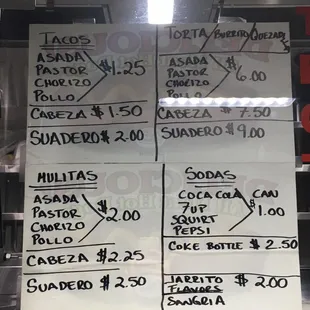 TACOS
ASADA
PASTOR
CHORIZO
POLLO
$1.25
CABEZA $1.50
SUADERO $2.00
TORTA / BURRITO / QUEZAD
ASADA
PASTOR
CHORIZO
POLLO
$6.00
CABEZA $7.50
SUADERO $9.00
MULITAS
ASADA
PASTOR
CHORIZO
POLLO
$2.00
CABEZA $2.25
SUADERO $2.50
SODAS
COCA COLA CAN
7UP
SQUIRT
PEPSI
$1.00
COKE BOTTLE $2.50
JARRITO $2.00
FLAVORS
SANGRIA